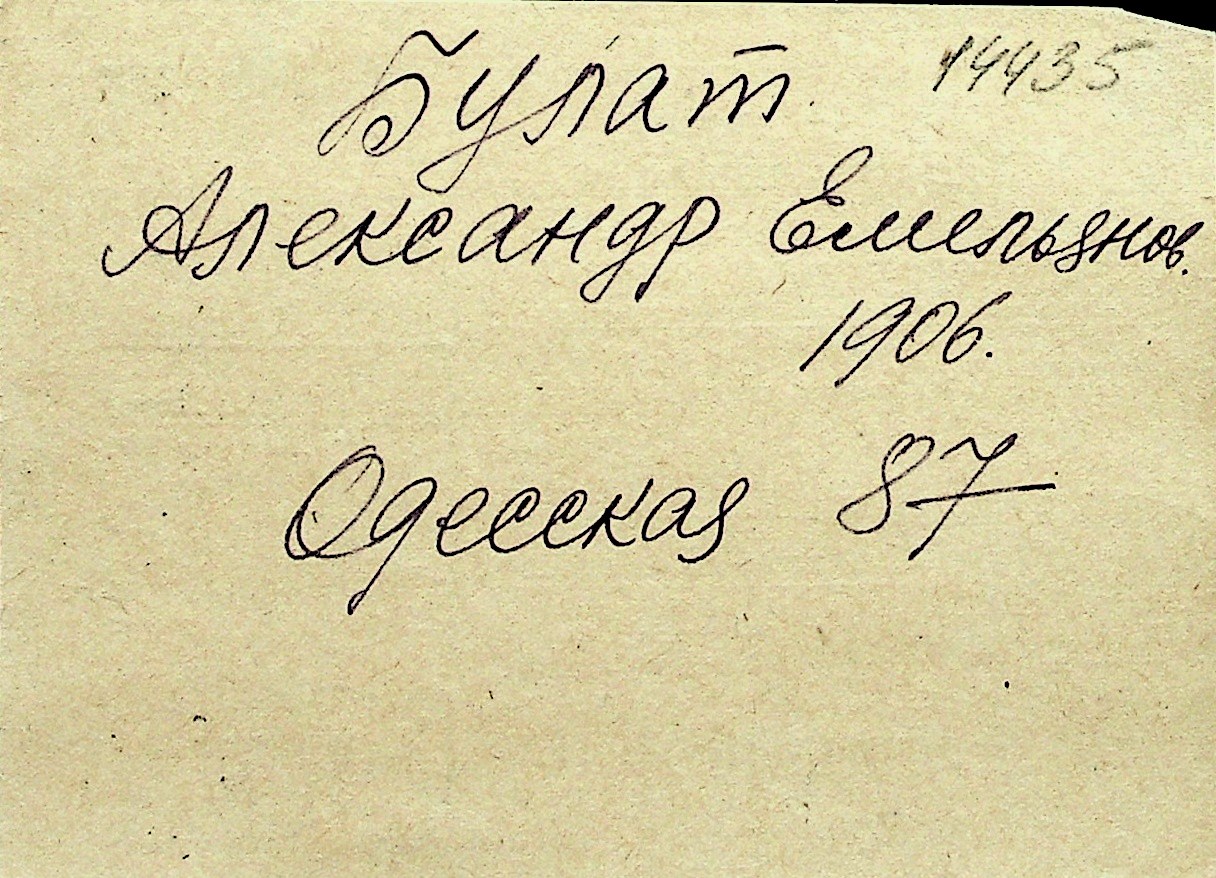 Булат 14435
Александр Емельянов.
1906.
Одесская 87